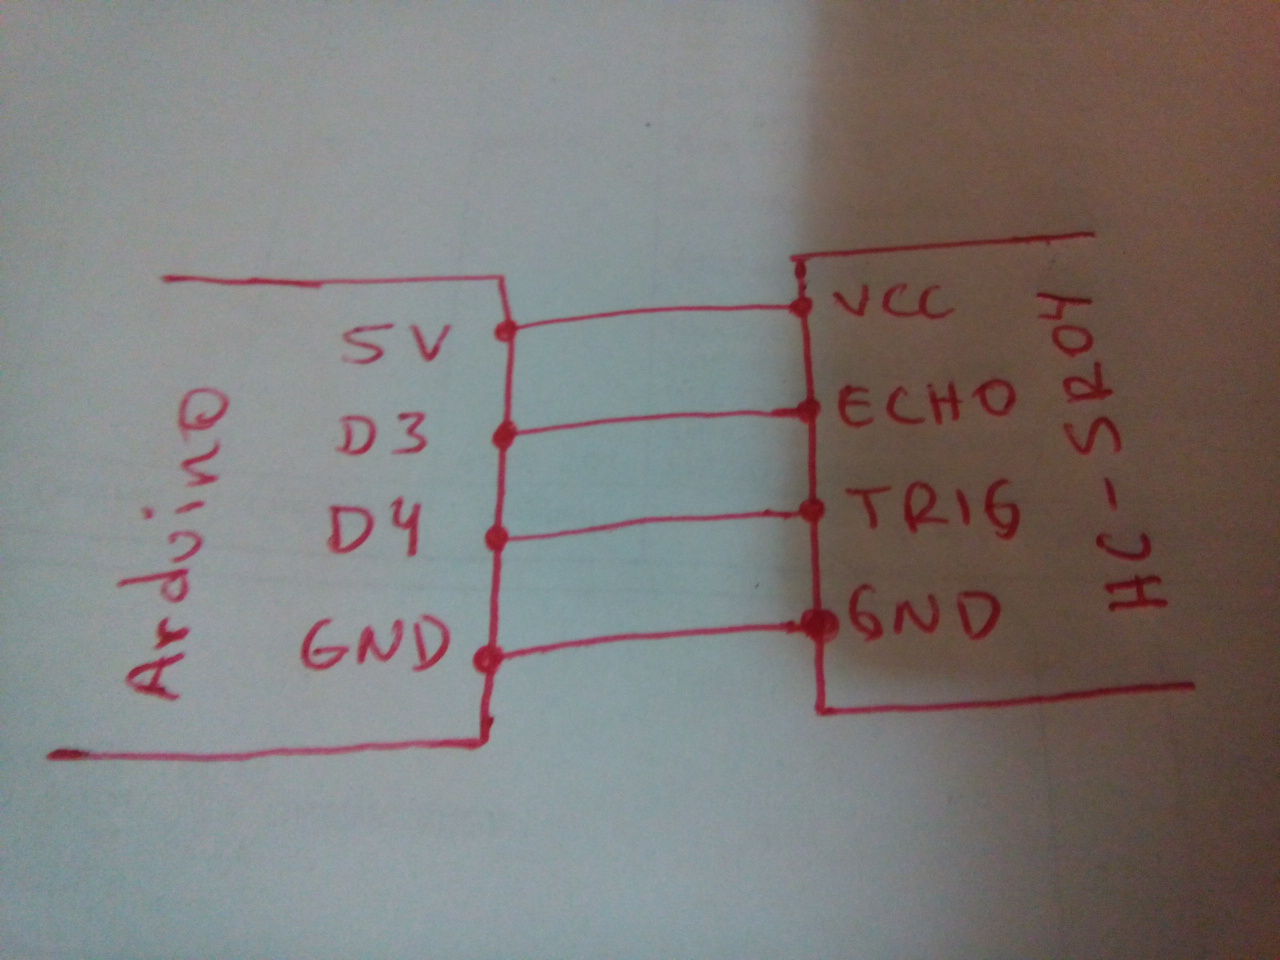 Arduino
5V
D3
D4
GND
VCC
ECHO
TRIG
GND
HC-SR04